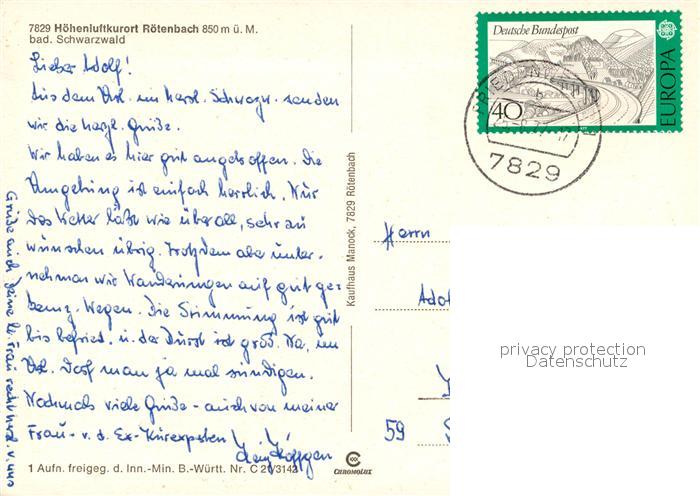 7829 Höhenluftkurort Rötenbach 850 m ü. M.
bad. Schwarzwald
Lieber Adolf!
Aus dem Url. im herrl. Schwarzw. senden
wir die herzl. Grüße.
Wir haben es hier gut angetroffen. Die
Umgebung ist einfach herrlich. Nur
das Wetter läßt wie überall, sehr zu
wünschen übrig. Trotzdem aber unter-
nehmen wir Wanderungen auf gut ge-
kennz. Wegen. Die Stimmung ist gut
bis befried. u. der Durst ist groß. Na, im
Url. darf man ja mal sündigen.
Nochmals viele Grüße - auch von meiner
Frau - v. d. Ex-Kurexperten
Grüße auch Deine lb. Frau recht herzl. v. uns
1 Aufn. freigeg. d. Inn.-Min. B.-Württ. Nr. C 20/3142
Kaufhaus Manock, 7829 Rötenbach
CHROMOLUX
Deutsche Bundespost
40
EUROPA
7829
Herrn
Adol
59
privacy protection
Datenschutz